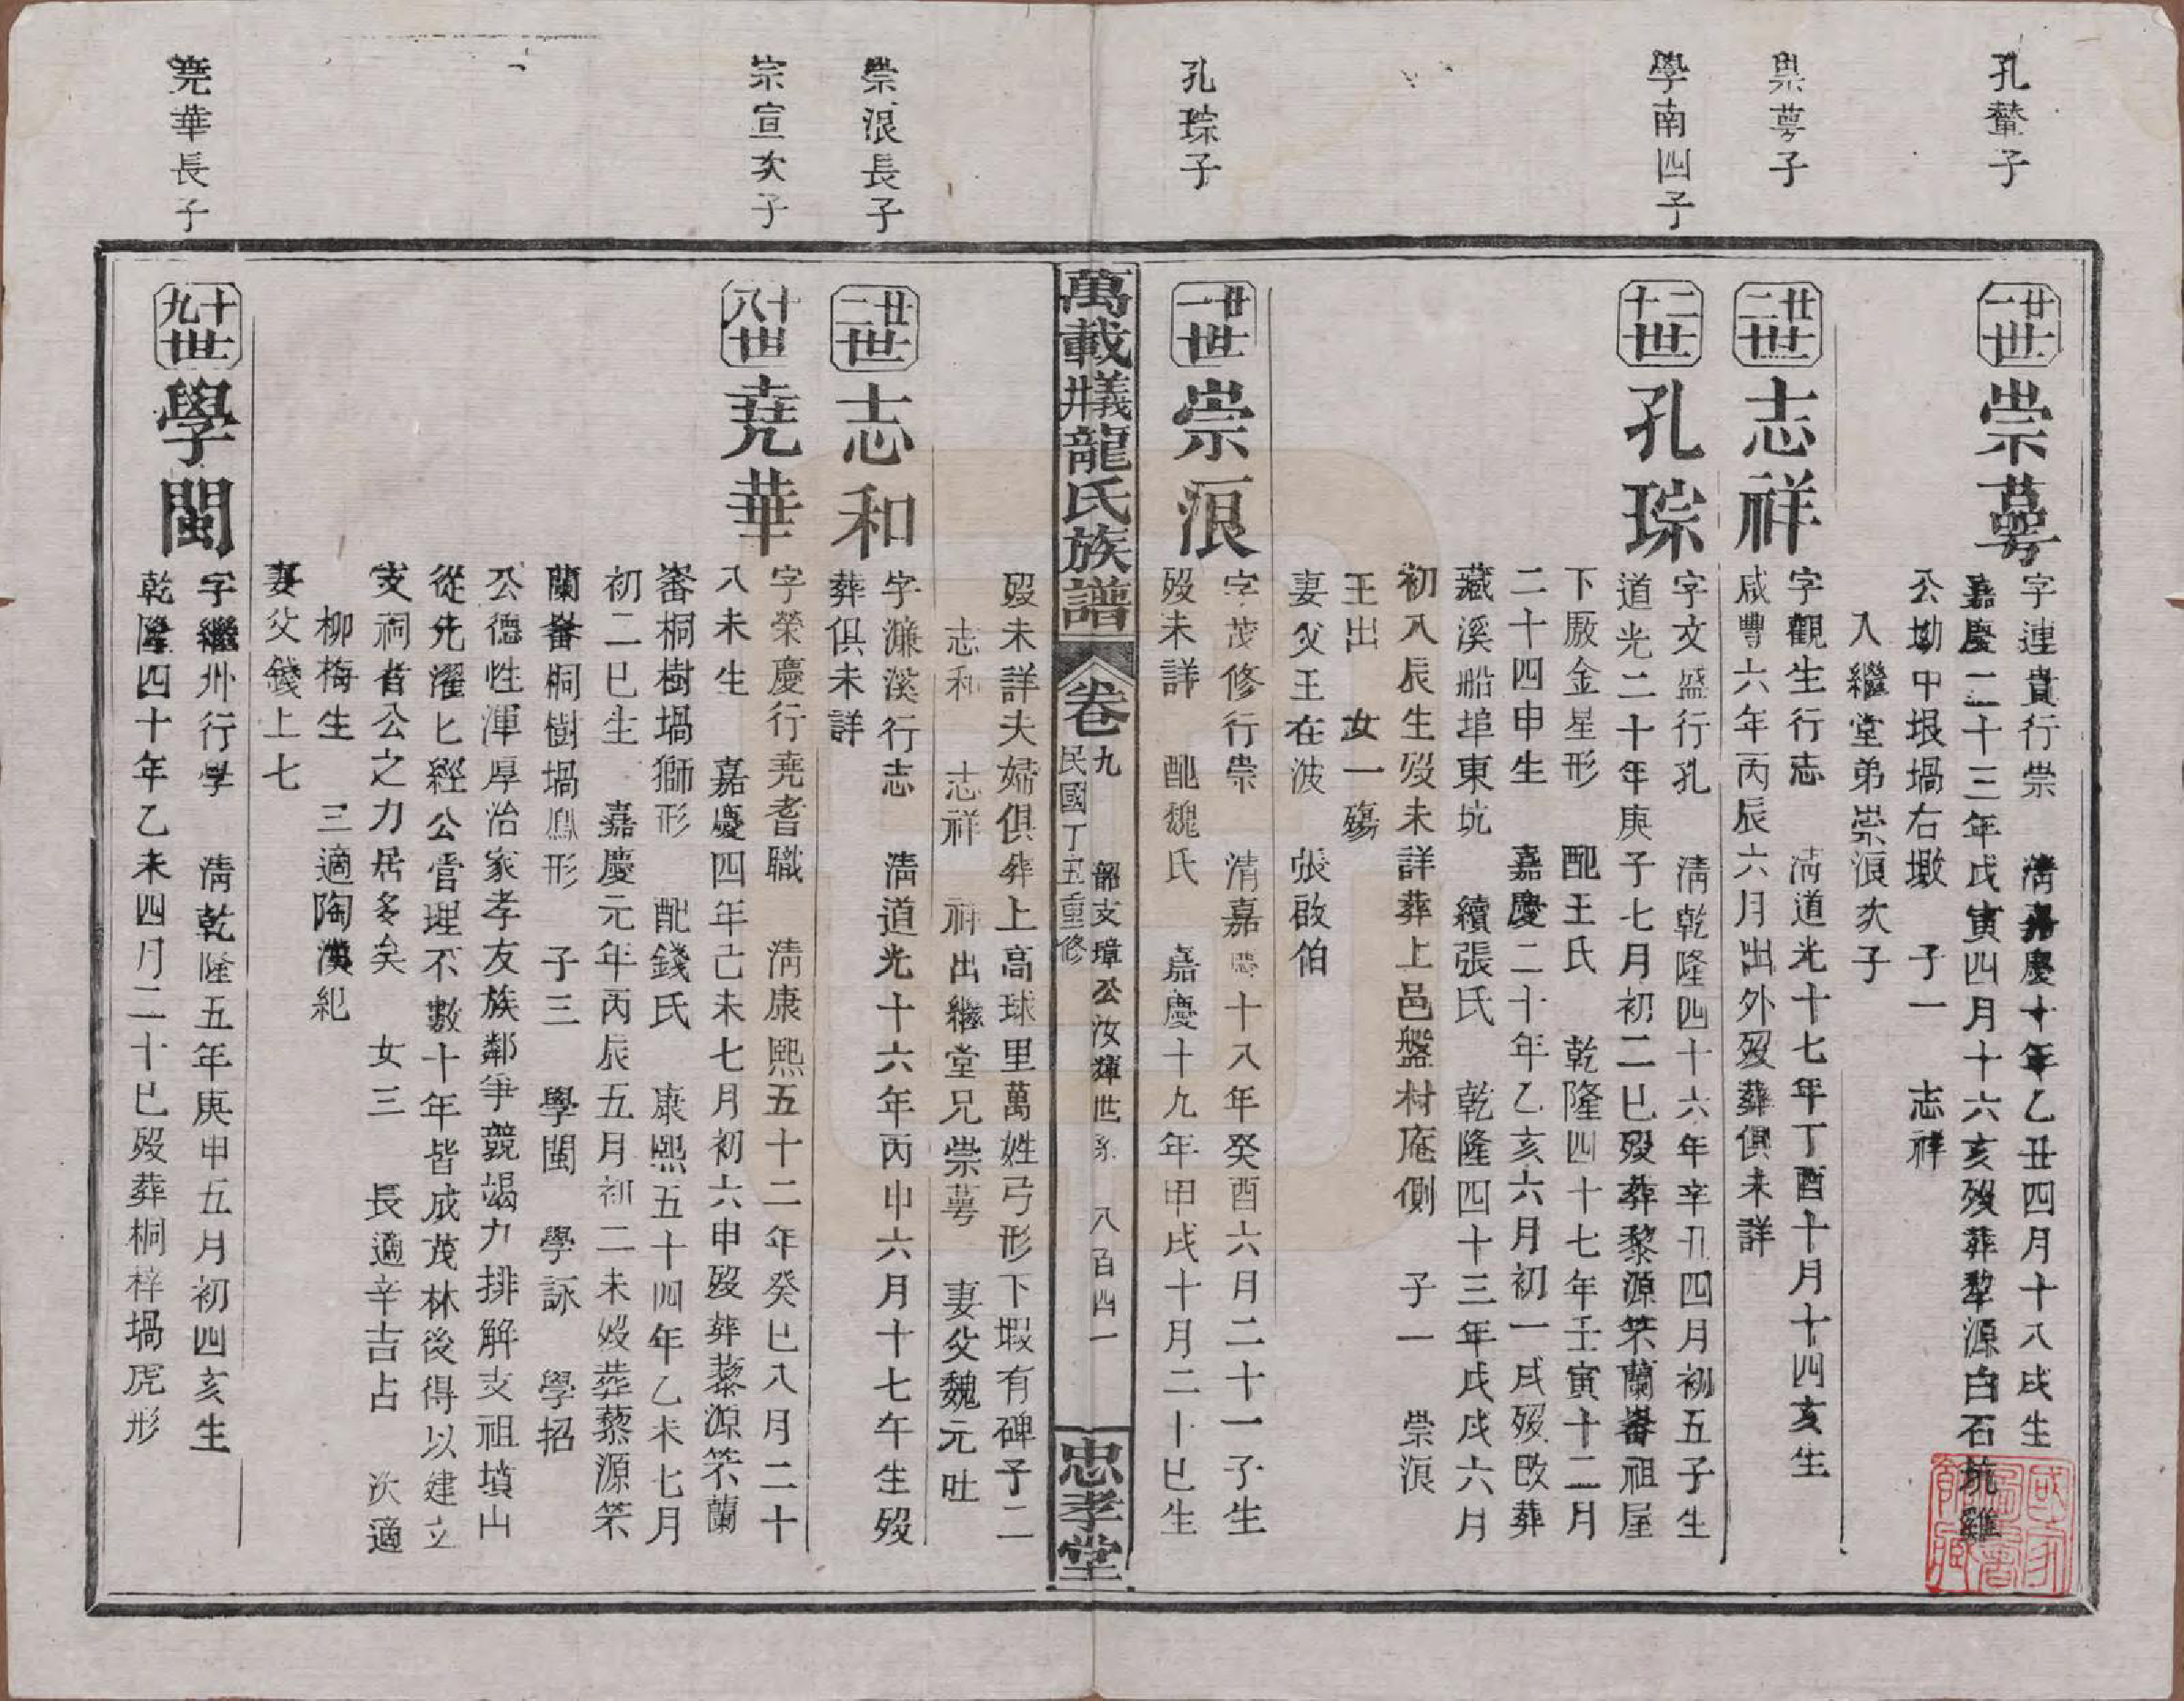 孔鰲子
廿一世
崇蕚
字連貴行崇　淸嘉慶十年乙丑四月十八戌生
嘉慶二十三年戊寅四月十六亥歿葬犂源白石坑雞
公坳中垠堝右墩　子一　志祥
入繼堂弟崇浪次子
崇蕚子
廿二世
志祥
字觀生行志　淸道光十七年丁酉十月十四亥生
咸豐六年丙辰六月出外歿葬俱未詳
學南四子
二十世
孔琮
字文盛行孔　淸乾隆四十六年辛丑四月初五子生
道光二十年庚子七月初二巳歿葬黎源笨蘭畬祖屋
下厫金星形　配王氏　乾隆四十七年壬寅十二月
二十四申生　嘉慶二十年乙亥六月初一戌歿改葬
藏溪船埠東坑　續張氏　乾隆四十三年戊戌六月
初八辰生歿未詳葬上邑盤村庵側　子一　崇浪
王出　女一殤
妻父王在波　張啟伯
孔琮子
廿一世
崇浪
字茂修行崇　清嘉慶十八年癸酉六月二十一子生
歿未詳　配魏氏　嘉慶十九年甲戌十月二十巳生
萬載井義龍氏族譜
卷九　韶支璋公汝輝世系　八百四一
民國丁丑重修
忠孝堂
歿未詳夫婦俱葬上高球里萬姓弓形下塅有碑子二
志和　志祥　祥出繼堂兄崇蕚　妻父魏元吐
崇浪長子
廿二世
志和
字濂溪行志　淸道光十六年丙申六月十七午生歿
葬俱未詳
宗宣次子
十八世
堯華
字榮慶行堯耆職　淸康熙五十二年癸巳八月二十
八未生　嘉慶四年己未七月初六申歿葬藜源笨蘭
畬桐樹堝獅形　配錢氏　康熙五十四年乙未七月
初二巳生　嘉慶元年丙辰五月初二未歿葬藜源笨
蘭畬桐樹堝鳳形　子三　學閩　學詠　學招
公德性渾厚治家孝友族鄰爭競竭力排解支祖墳山
從先濯匕經公嘗理不數十年皆成茂林後得以建立
支祠者公之力居多矣　女三　長適辛吉占　次適
柳梅生　三適陶漢紀
妻父錢上七
堯華長子
十九世
學閩
字繼州行學　淸乾隆五年庚申五月初四亥生
乾隆四十年乙未四月二十巳歿葬桐梓堝虎形
國家圖書館藏